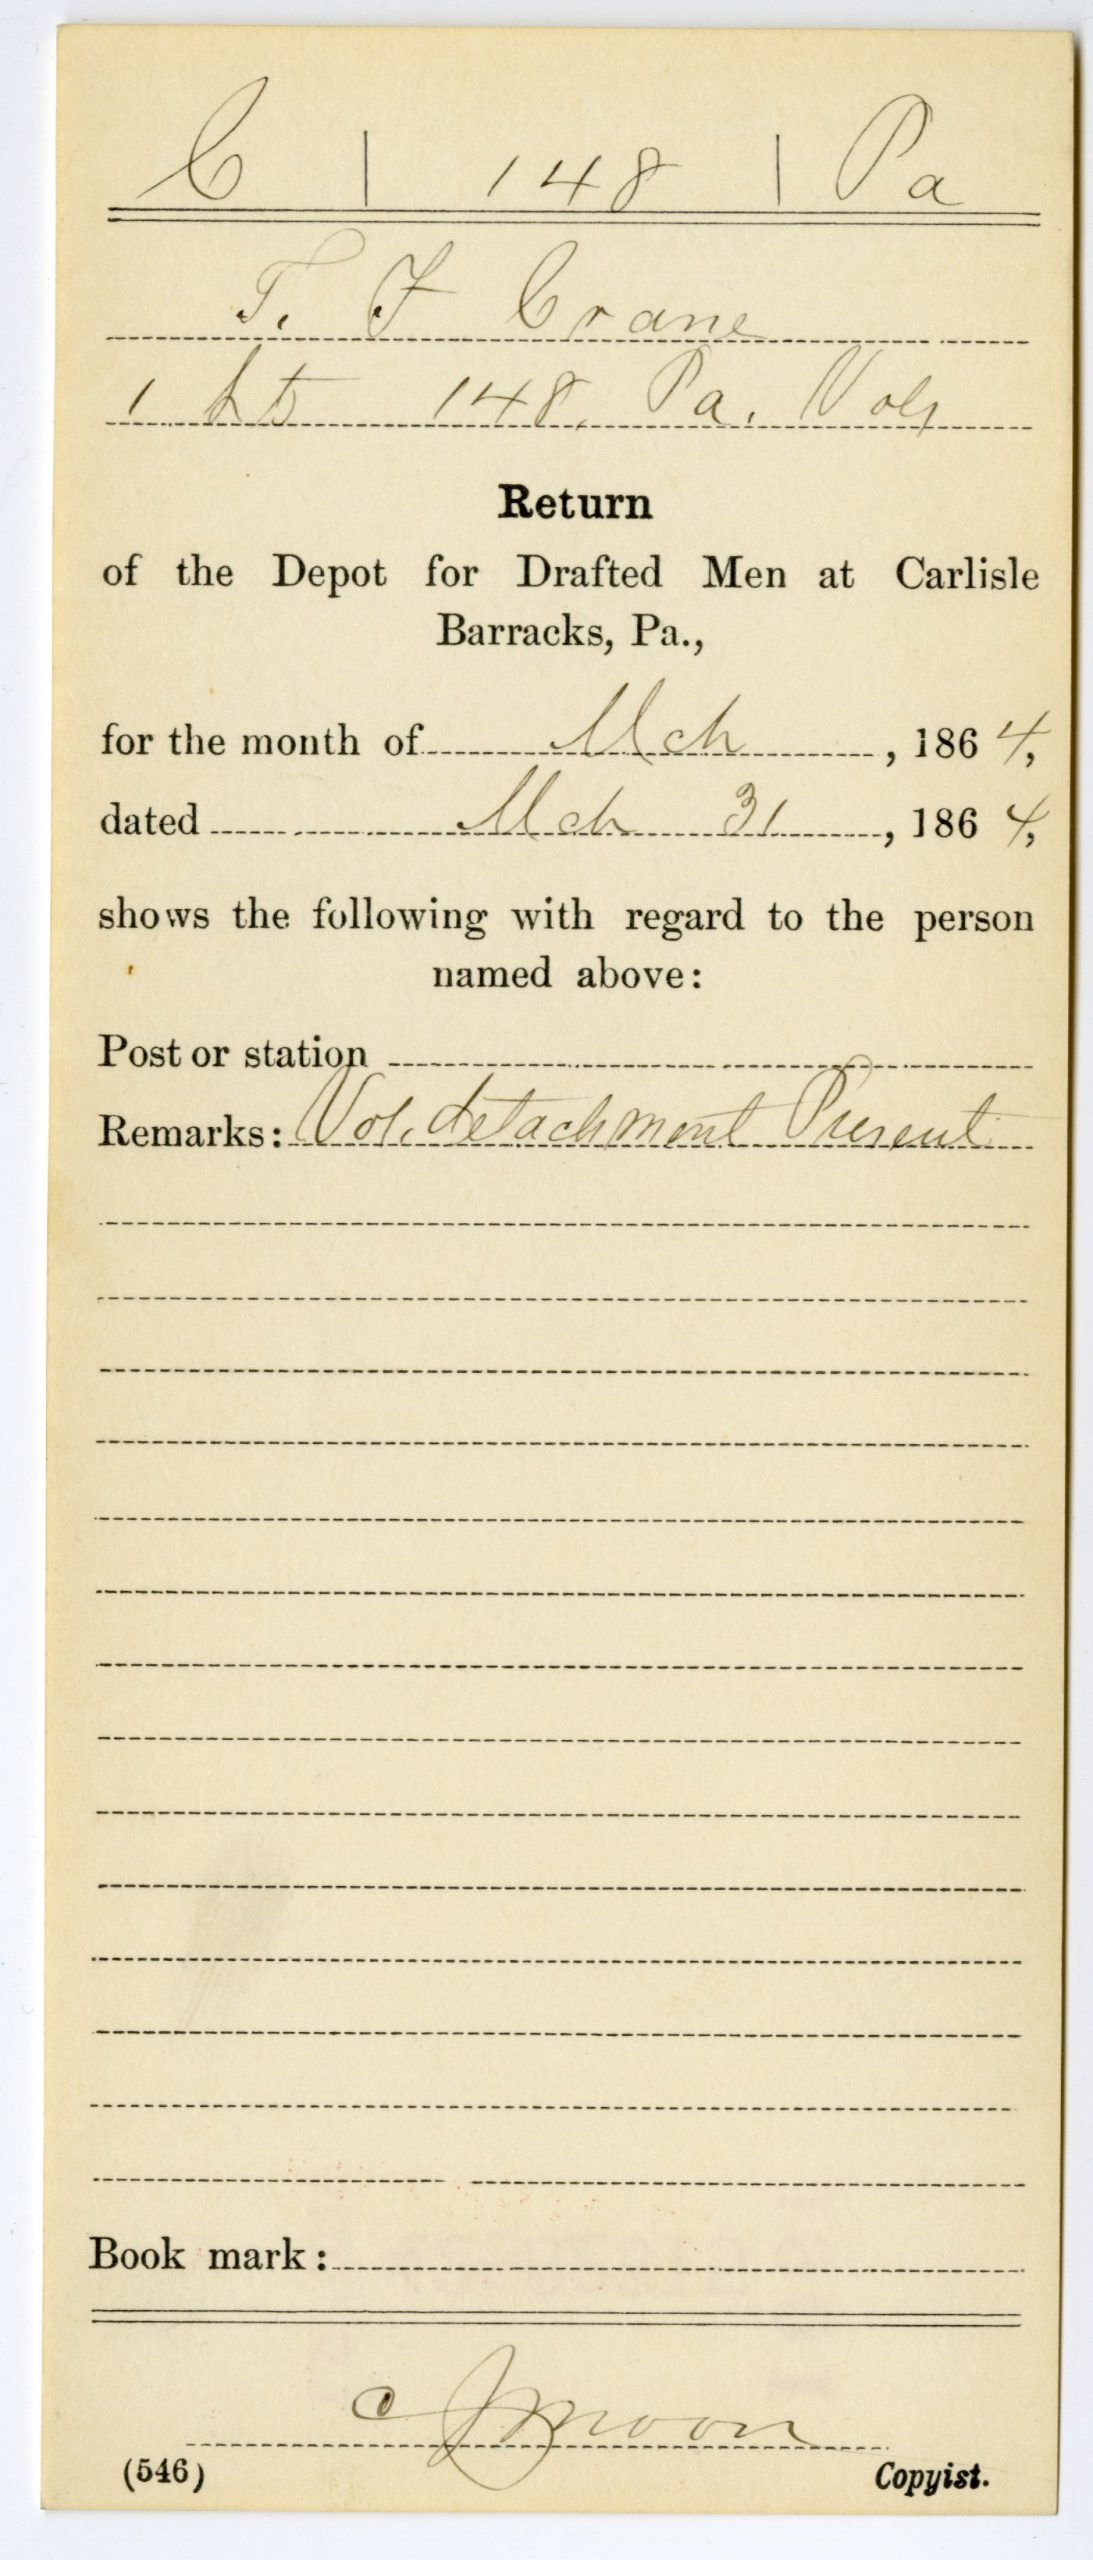 C | 148 | Pa
T. F Crane
1 Lt 148. Pa. Vols
Return
of the Depot for Drafted Men at Carlisle
Barracks, Pa.,
for the month of Mch, 1864,
dated Mch 31, 1864,
shows the following with regard to the person
named above:
Post or station
Remarks: Vol. detachment Present
Book mark:
Moon
(546) Copyist.